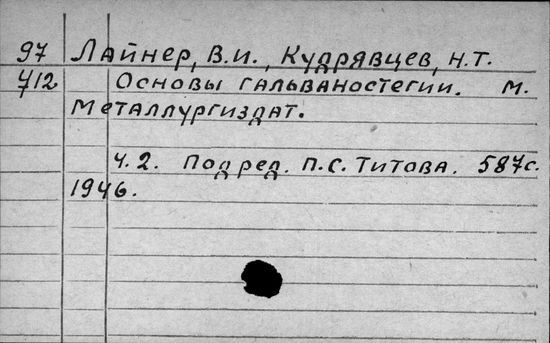 97 Лайнер, В.И., Кудрявцев, Н.Т.
У12 Основы гальваностегии. М.
Металлургиздат.
Ч.2. Под ред. П.С. Титова. 587с.
1946.